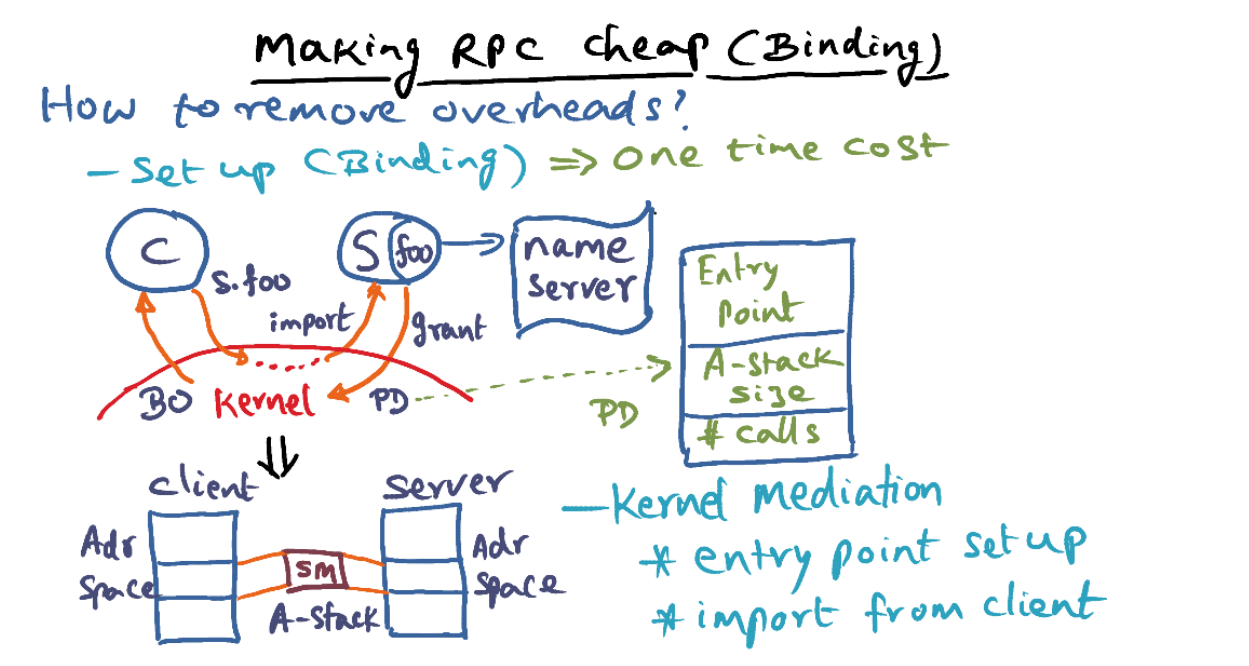 Making RPC cheap (Binding)
How to remove overheads?
- Set up (Binding) => One time cost
C
S foo
name
server
s.foo
import
grant
BO
kernel
PD
PD
Entry
point
A-stack
size
# calls
client
server
Adr
Space
SM
A-stack
Adr
Space
- Kernel mediation
* entry point set up
* import from client